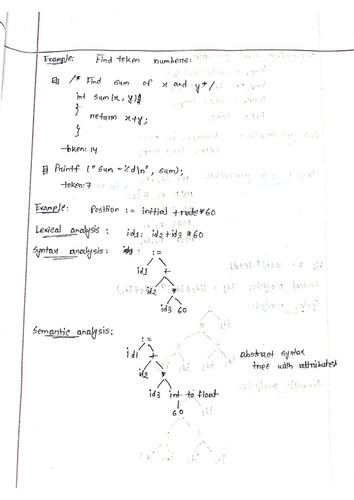 Example: Find token numbers:
/* Find sum of x and y */
int sum(x, y){
}
return x+y;
{
token: 14
Printf ("sum = %d\n", sum);
-token: 7
Example: Position := initial + rate * 60
Lexical analysis : id1: id2+id3 * 60
Syntax analysis : :=
id1 +
id2 *
id3 60
Semantic analysis:
:=
id1 + abstract syntax
id2 * tree with attributed
id3 int to float
60